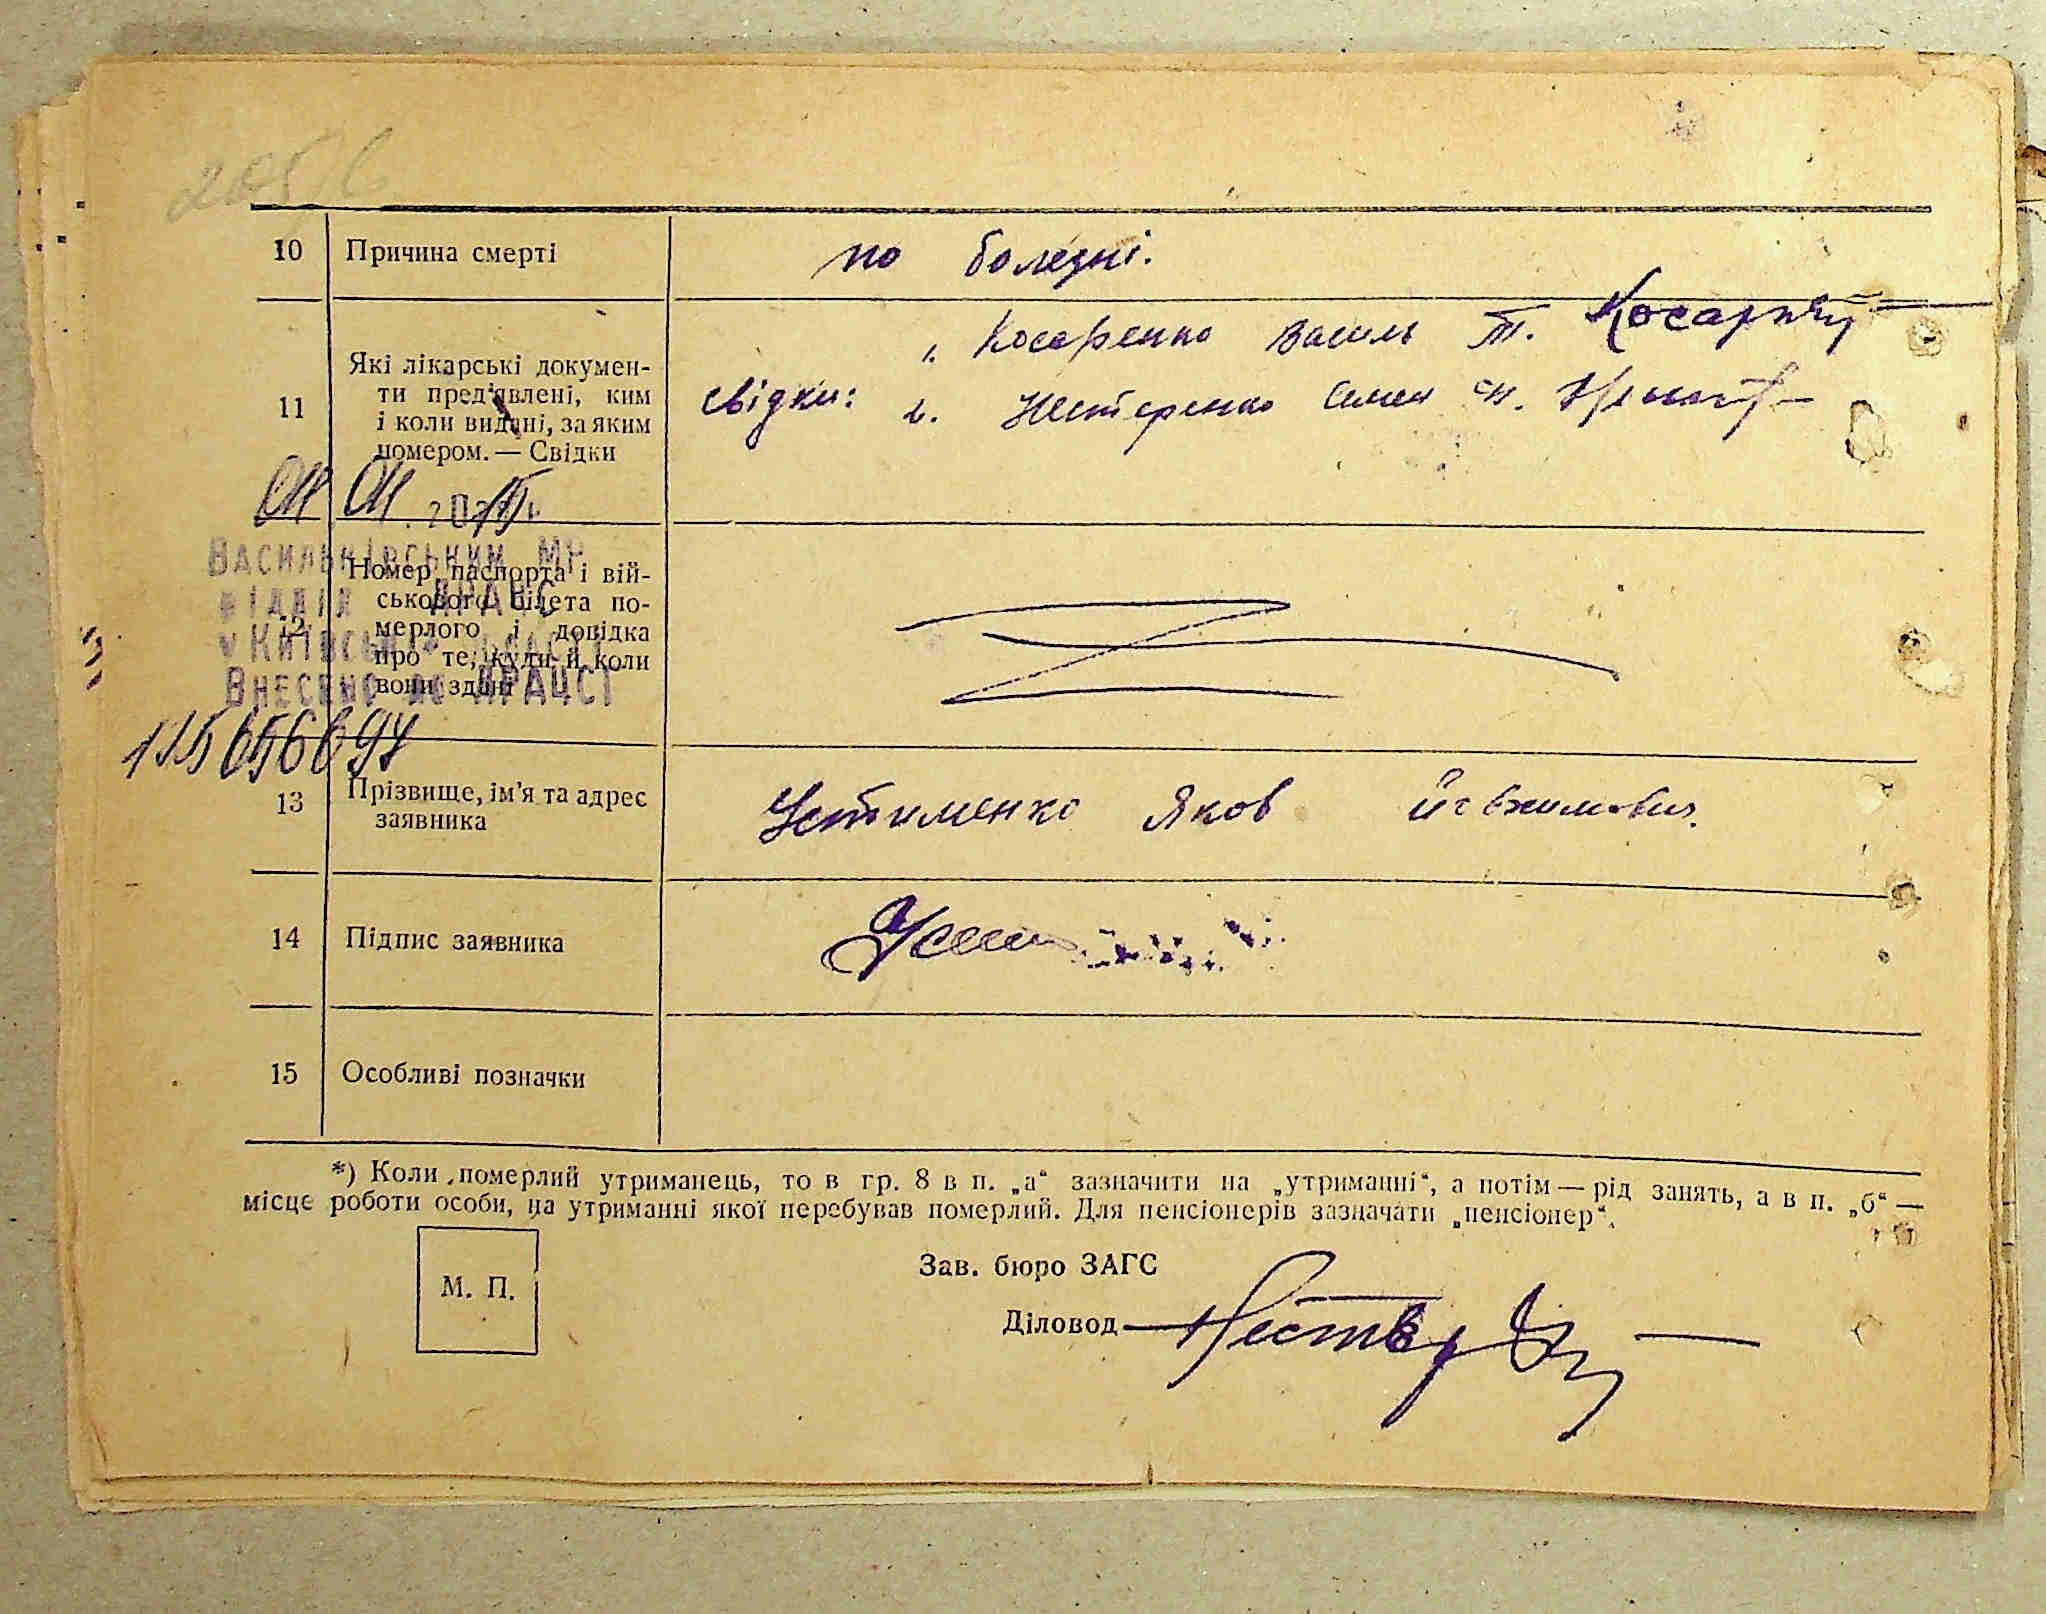 10 Причина смерті по болезні.
11 Які лікарські докумен-
ти пред'явлені, ким
і коли видані, за яким
номером. — Свідки
1. Косаренко Василь Т.
свідки: 2. Нестеренко Семен
Васильківським МР
відділ ДРАЦС
у Київській області
Внесено до ДРАЦСГ
12 Номер паспорта і вій-
ськового білета по-
мерлого і довідка
про те, куди й коли
вони здані
13 Прізвище, ім'я та адрес
заявника
Устименко Яков
14 Підпис заявника
15 Особливі позначки
*) Коли померлий утриманець, то в гр. 8 в п. „а“ зазначити на „утриманні“, а потім — рід занять, а в п. „б“ —
місце роботи особи, на утриманні якої перебував померлий. Для пенсіонерів зазначати „пенсіонер“.
М. П.
Зав. бюро ЗАГС
Діловод